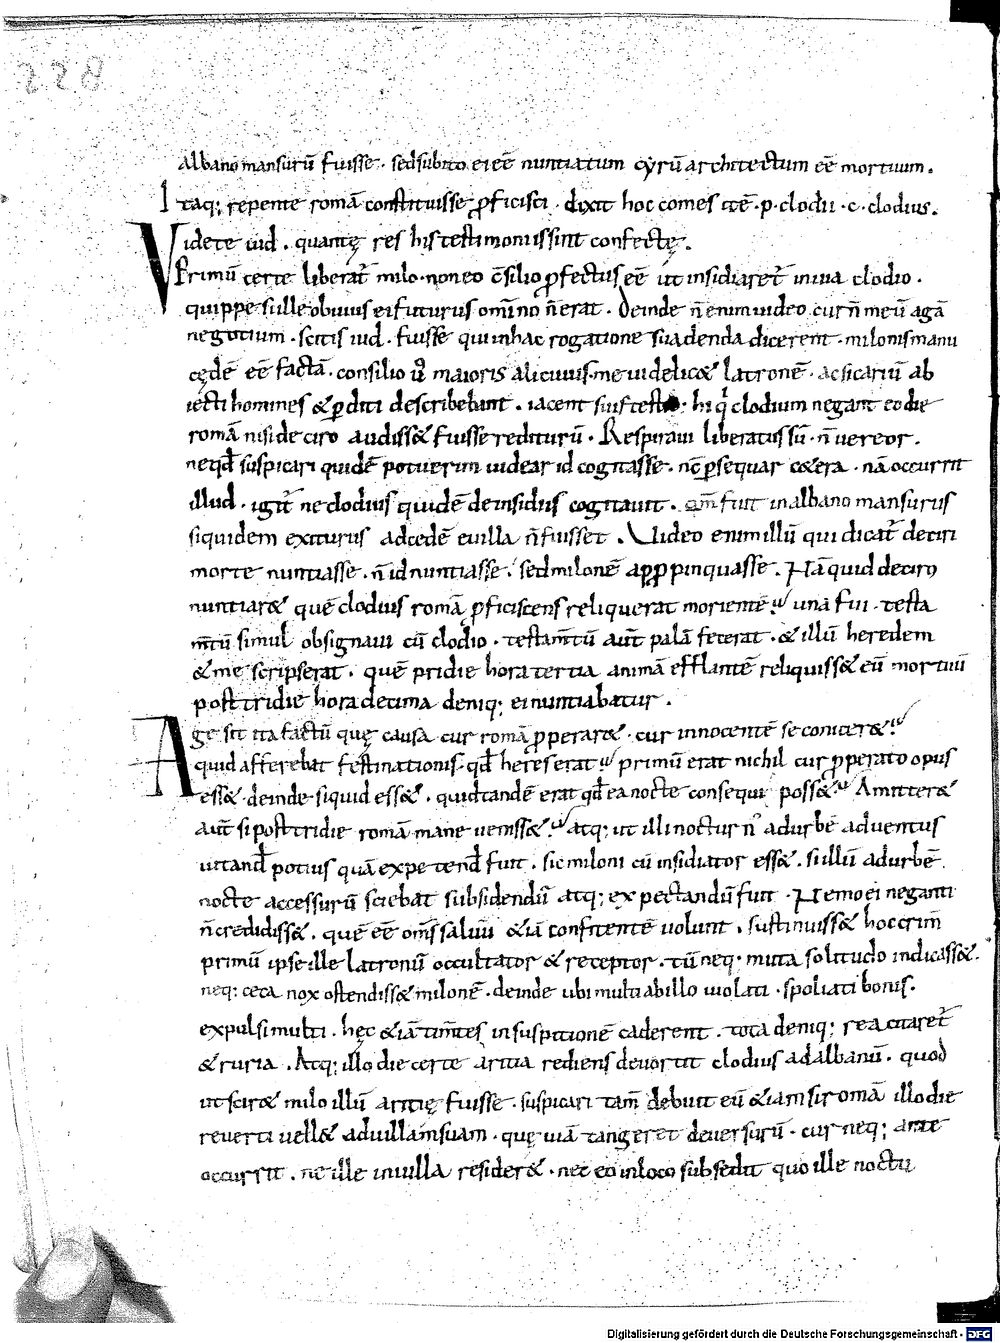 228
albano mansurū fuisse · sed subito ei eē nuntiatum cyrū architectum eē mortuum.
Itaq; repente romā constituisse ꝓficisci · dixit hoc comes itē · p · clodii · c · clodius.
Videte iud · quantę res his testimoniis sint confectę.
Primū certe liberat̄ milo · non eo c̄silio ꝓfectus eē ut insidiaret̄ in uia clodio ·
quippe si ille obuius ei futurus omīno n̄ erat · Deinde n̄ enim uideo cur n̄ meū agā
negotium · scitis iud · fuisse qui in hac rogatione suadenda dicerent · milonis manu
cędē eē factā · consilio ū maioris alicuius · me uidelic& latronē · ac sicariū ab
iecti homines & ꝑditi describebant · iacent suis testib; hi q̇ clodium negant eo die
romā nisi de ciro audiss& fuisse rediturū · Respiraui liberatus sū · n̄ uereor ·
ne qd̄ suspicari quidē potuerim uidear id cogitasse · nc̄ ꝑsequar c&era · nā occurrit
illud · igit̄ ne clodius quidē de insidiis cogitauit · qm̄ fuit in albano mansurus
siquidem exiturus ad cedē e uilla n̄ fuisset · Uideo enim illū qui dicat̄ de ciri
morte nuntiasse · n̄ id nuntiasse · sed milonē apꝓpinquasse · Nā quid de ciro
nuntiar& quē clodius romā ꝓficiscens reliquerat morientē? una fui · testa
m̄tū simul obsignaui cū clodio · testam̄tū aut̄ palā fecerat · & illū heredem
& me scripserat · quē pridie hora tertia animā efflantē reliquiss& eū mortuū
postridie hora decima deniq; ei nuntiabatur ·
Age sit ita factū quę causa cur romā ꝓperar& · cur in nocte se conicer&?
quid afferebat festinationis · qd̄ heres erat? primū erat nichil cur ꝓperato opus
ess& · deinde si quid ess& · quid tandē erat qd̄ ea nocte consequi poss&? Amitter&
aut̄ si postridie romā mane ueniss&? atq; ut illi nocturn᷒ ad urbē aduentus
uitand᷒ potius quā expetend᷒ fuit · sic miloni cū insidiator ess& · si illū ad urbē
nocte accessurū sciebat subsidendū atq; expectandū fuit · Nemo ei neganti
n̄ credidiss& · quē eē om̄s saluū & iā confitentē uolunt · sustinuiss& hoc crim̄
primū ipse ille latronū occultator & receptor · tū neq · muta solitudo indicass& ·
neq; ceca nox ostendiss& milonē · deinde ubi multi ab illo uiolati · spoliati bonis ·
expulsi multi · hęc & iā tim̄tes in suspitionē caderent · tota deniq; rea citaret̄
& ruria · Atq; illo die certe aritia rediens deuortit clodius ad albanū · quod
ut scir& milo illū aritię fuisse · suspicari tam̄ debuit eū & iam si romā illo die
reuerti uell& ad uillam suam · quę uiā tangeret deuersurū · cur neq; ante
occurrit · ne ille in uilla resider& · nec eo in loco subsedit quo ille noctu
Digitalisierung gefördert durch die Deutsche Forschungsgemeinschaft - DFG